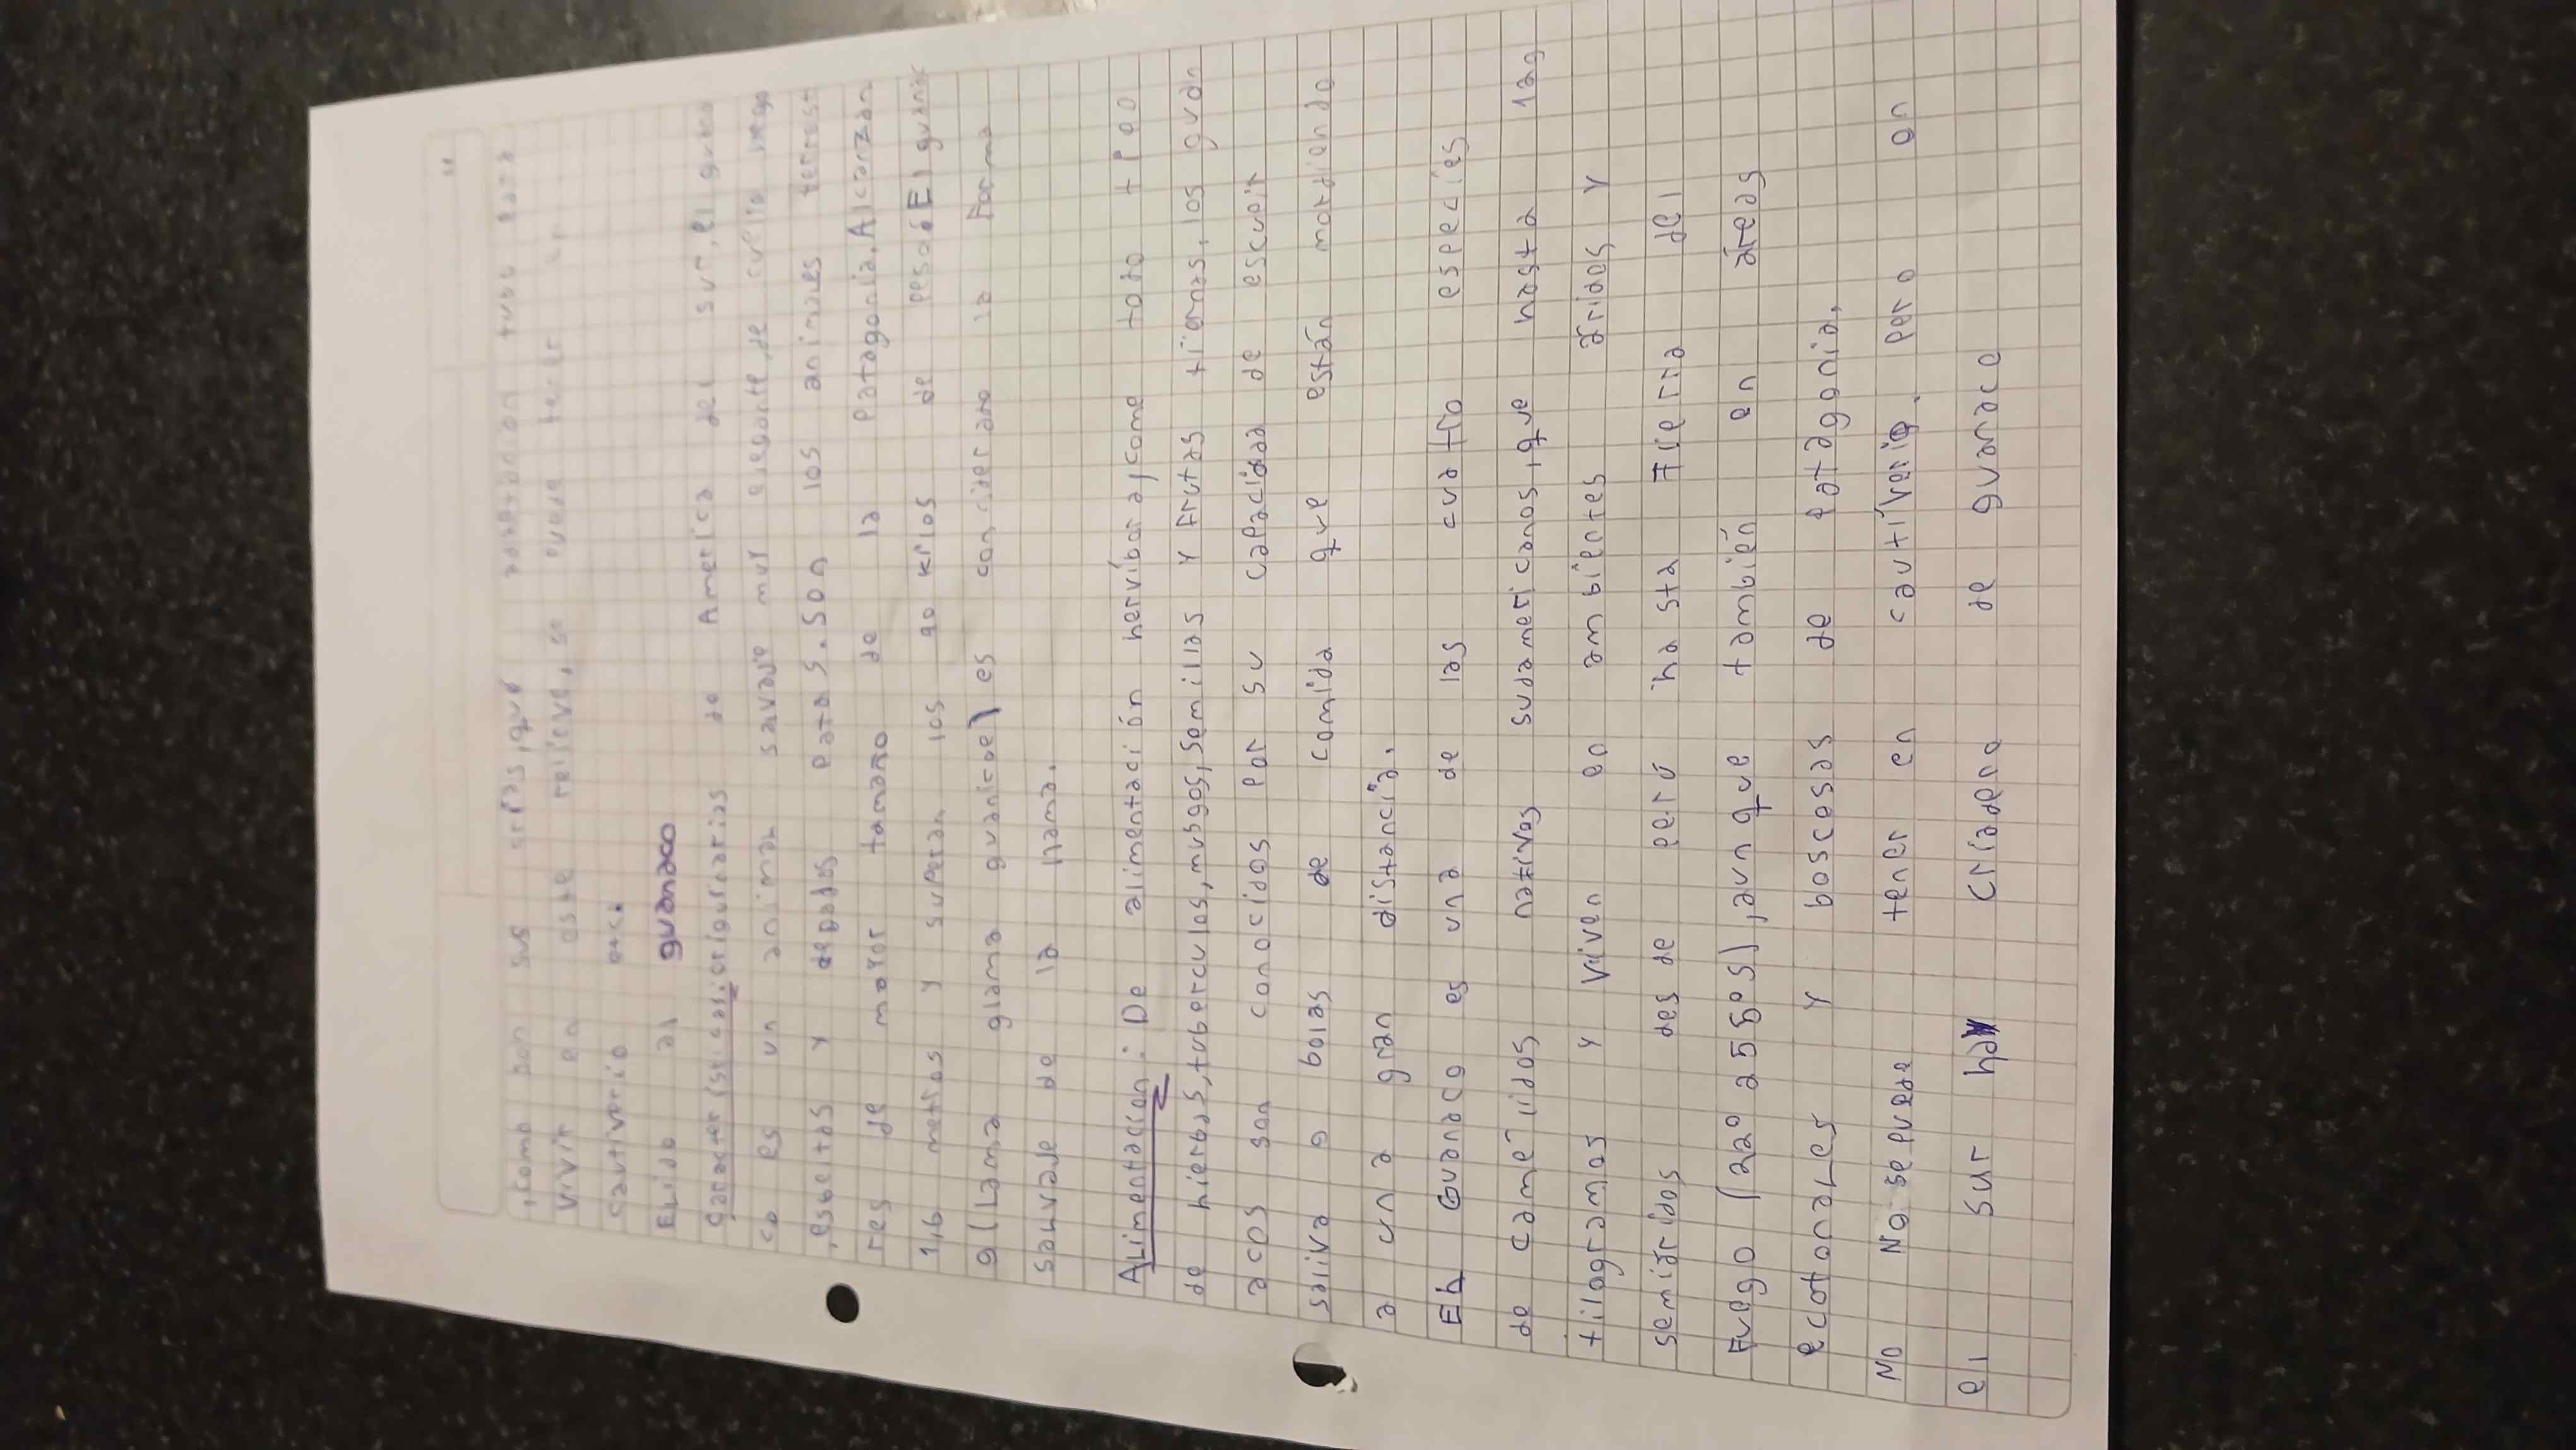 ,como con sus crías, que abandonan tubo para
vivir en este relieve, se puede tener
cautiverio
ELido al guanaco
caracter(sticas: origunarias de America del sur, el guana
co es un animal salvaje muy elegante, de cuello largo
,esbeltas y delgados patas. Son los animales terrest
res de mayor tamaño de la Patagonia. Alcanzan
1,6 metros y superan los 90 kilos de peso. El guanic
o (Lama glama guanicoe) es considerado la forma
salvaje de la llama.
ALimentación: De alimentación hervíbora, come todo tipo
de hierbas, tuberculos, musgos, semillas y Frutas tiernas, los guan
acos son conocidos por su capacidad de escupir
saliva o bolas de comida que están mordiendo
a una gran distancia.
EL Guanaco es una de las cuatro especies
de camélidos nativos sudamericanos, que hasta 120
kilogramos y viven en ambientes áridos y
semiáridos desde perú hasta Tierra del
Fuego (22º a 55º S), aunque también en áreas
ecotonaLes y boscosas de Patagonia.
No No se puede tener en cautiverio. Pero en
el sur hay Criadero de guanaco